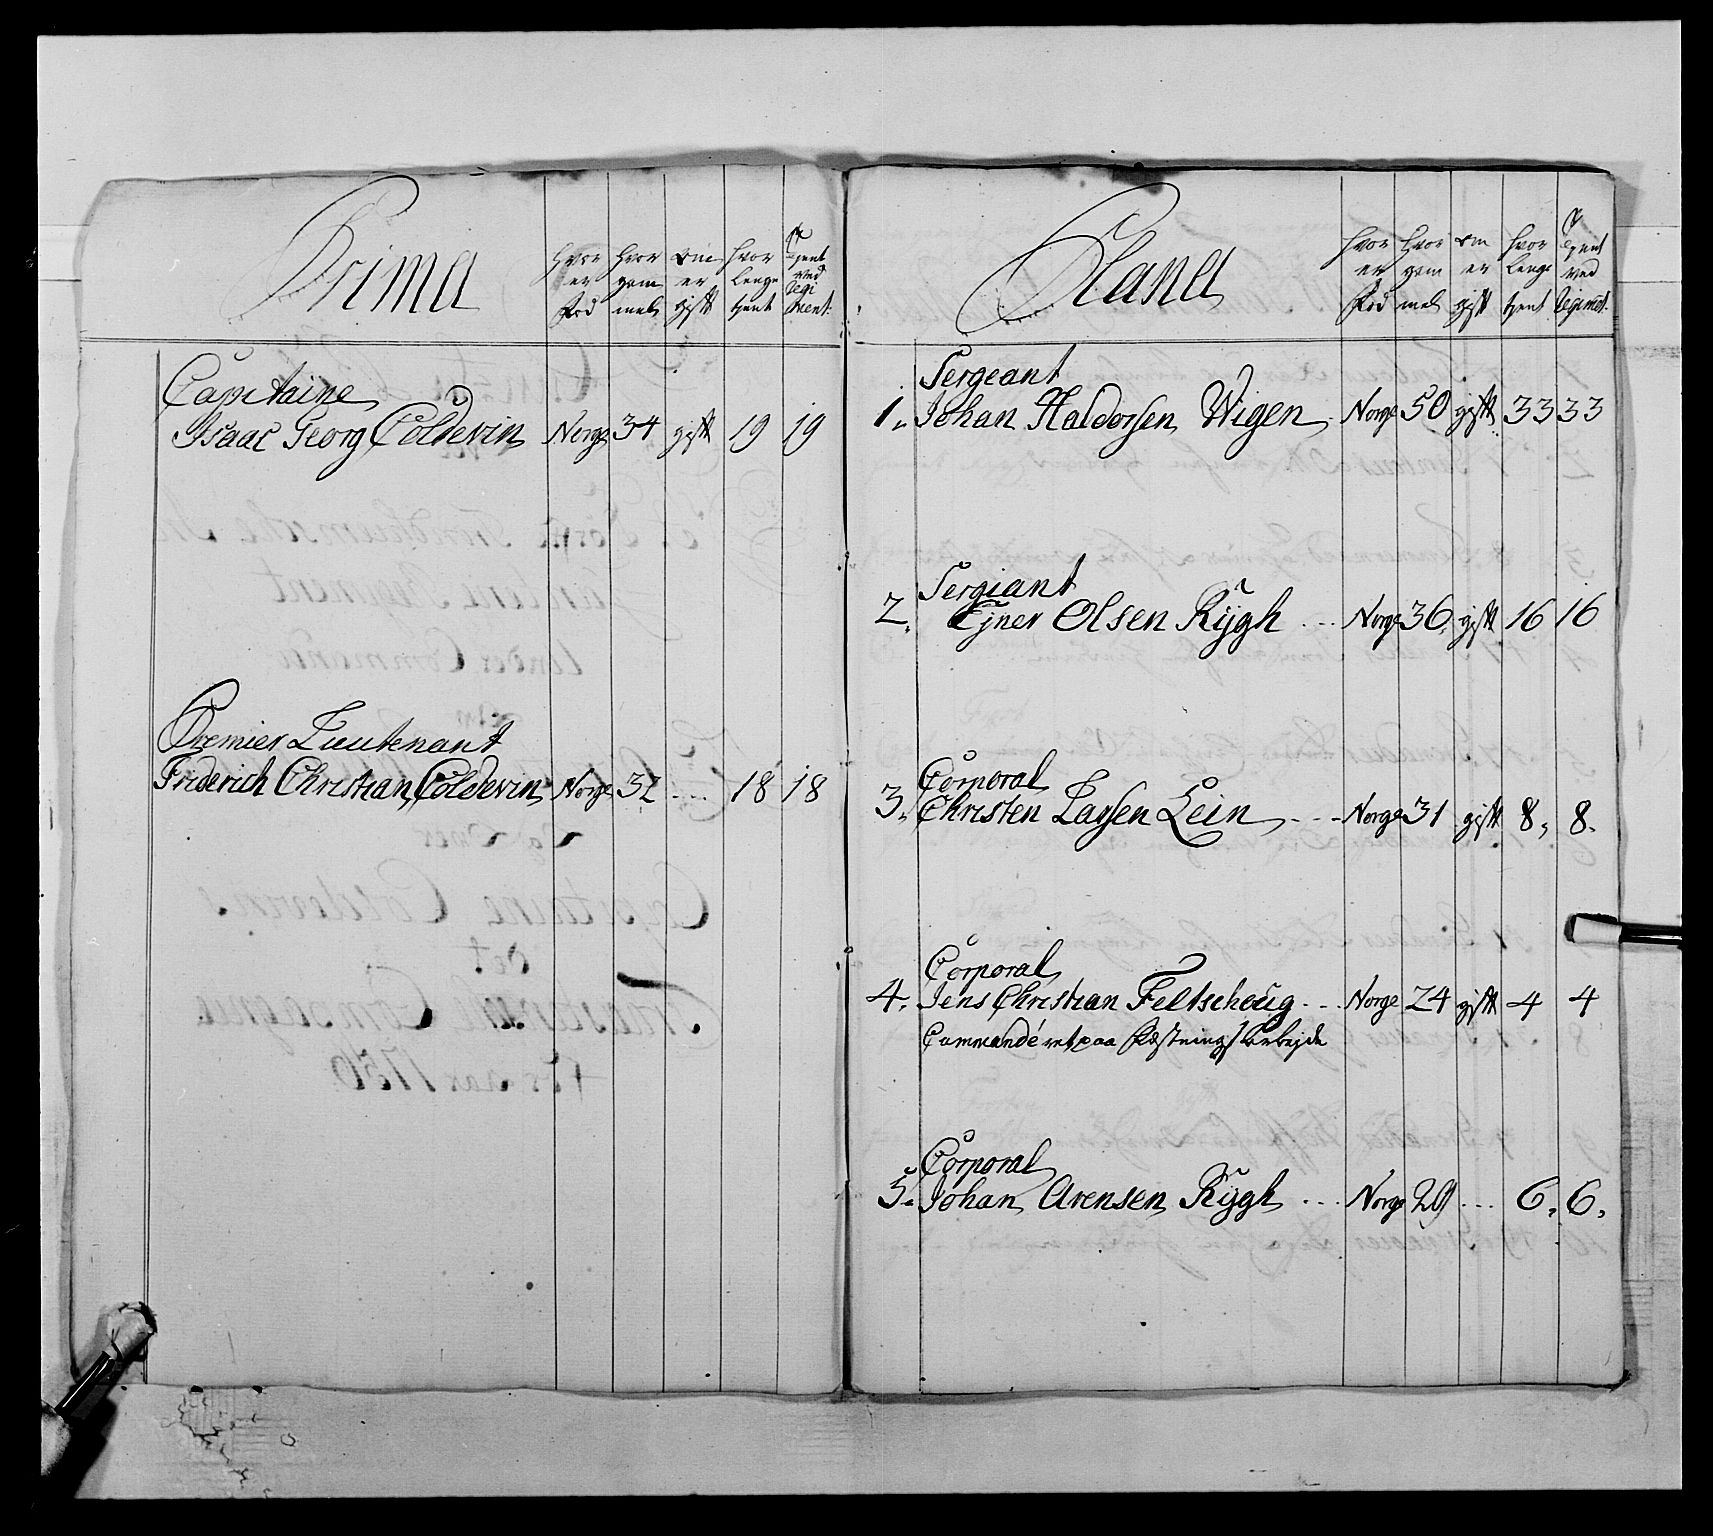 Prima
Hvor er Fød
Hvor gam mel
Om er gift
Hvor lenge tjent
Tjent ved Regi ment
Capitaine
Isaac Georg Coldevin Norge 34 gift 19 19
Premier Lieutenant
Friderich Christian Coldevin Norge 32 .... 18 18
Plana
Hvor er Fød
Hvor gam mel
Om er gift
Hvor lenge tjent
Tjent ved Regimet.
Sergeant
1. Johan Haldorsen Wigen Norge 50 gift 33 33
Sergiant
2. Ejner Olsen Rÿgh ... Norge 36 gift 16 16
Corporal
3. Christen Larsen Lein ... Norge 31 gift 8, 8.
Corporal
4. Jens Christian Feltscheüg ... Norge 24 gift 4 4
Commandéret paa Fæstnings Arbejde
Corporal
5. Johan Arensen Rÿgh ... Norge 29 ... 6, 6,